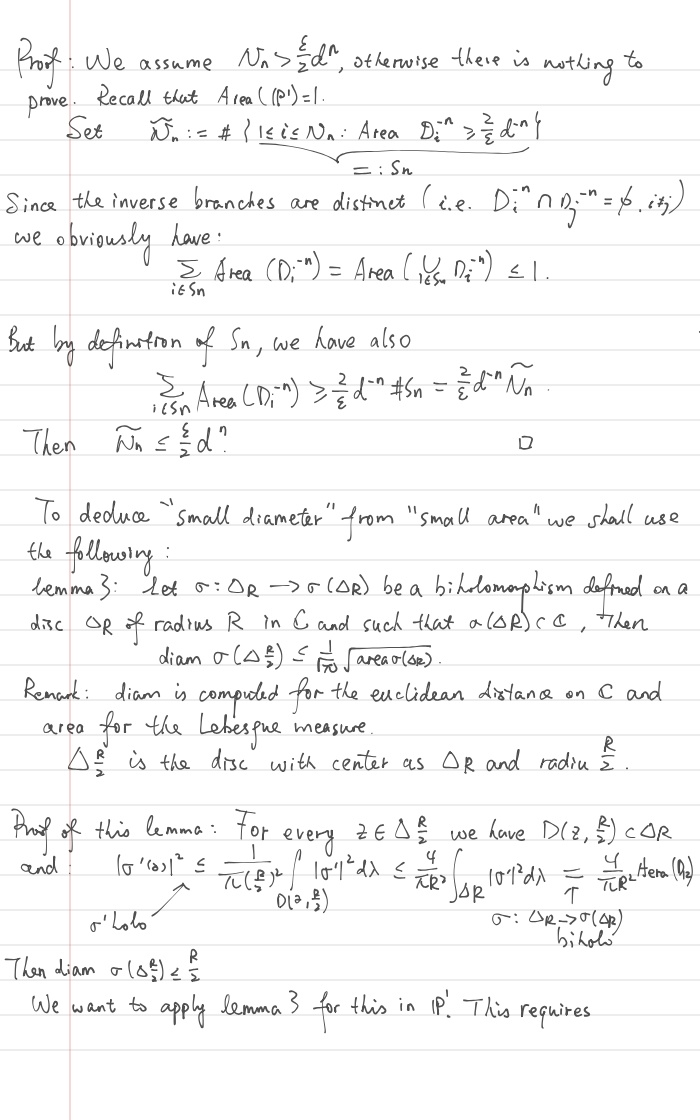 Proof: We assume N_n > ε/2 d^n, otherwise there is nothing to
prove. Recall that Area(ℙ¹)=1.
Set Ñ_n := # { 1≤i≤N_n : Area D_i^{-n} ≥ 2/ε d^{-n} }
=: S_n
Since the inverse branches are distinct (i.e. D_i^{-n} ∩ D_j^{-n} = ∅, i≠j)
we obviously have:
Σ_{i∈S_n} Area (D_i^{-n}) = Area ( ∪_{i∈S_n} D_i^{-n}) ≤ 1.
But by definition of S_n, we have also
Σ_{i∈S_n} Area (D_i^{-n}) ≥ 2/ε d^{-n} #S_n = 2/ε d^{-n} Ñ_n.
Then Ñ_n ≤ ε/2 d^n. □
To deduce "small diameter" from "small area" we shall use
the following:
Lemma 3: Let σ: Δ_R → σ(Δ_R) be a biholomorphism defined on a
disc Δ_R of radius R in ℂ and such that σ(Δ_R) ⊂ ℂ, Then
diam σ(Δ_{R/2}) ≤ 1/√π √area σ(Δ_R).
Remark: diam is computed for the euclidean distance on ℂ and
area for the Lebesgue measure.
Δ_{R/2} is the disc with center as Δ_R and radiu R/2.
Proof of this lemma: For every z ∈ Δ_{R/2} we have D(z, R/2) ⊂ Δ_R
and: |σ'(z)|² ≤ 1/(π(R/2)²) ∫_{D(z, R/2)} |σ'|² dλ ≤ 4/(πR²) ∫_{Δ_R} |σ'|² dλ = 4/(πR²)
σ' holo ↑ σ: Δ_R → σ(Δ_R)
biholo
Then diam σ(Δ_{R/2}) ≤ R/2
We want to apply lemma 3 for this in ℙ¹. This requires